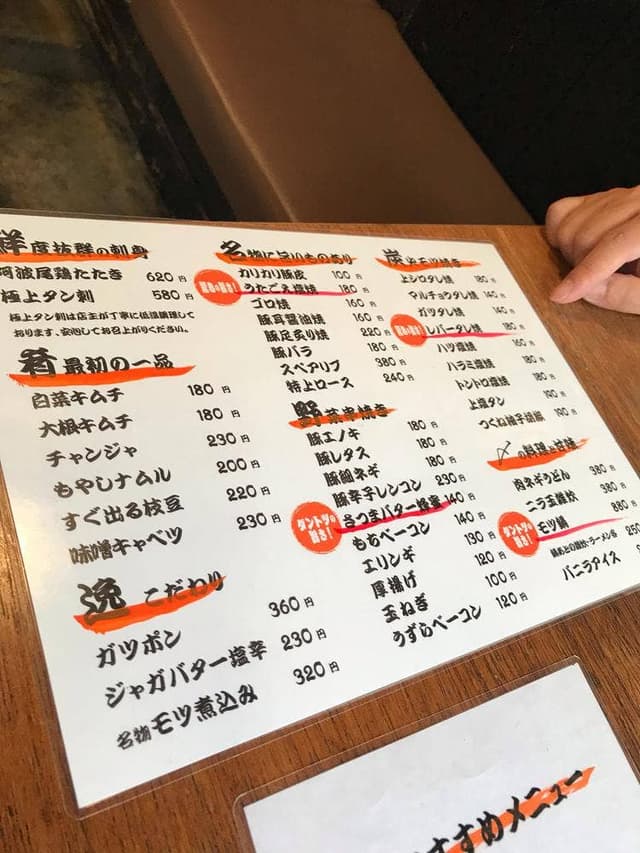 鮮度抜群の刺身
阿波尾鶏たたき 620円
極上タン刺 580円
極上タン刺は店主が丁寧に低温調理して
おります、安心してお召上がりください。
最初の一品
白菜キムチ 180円
大根キムチ 180円
チャンジャ 230円
もやしナムル 200円
すぐ出る枝豆 220円
味噌キャベツ 230円
逸 こだわり
ガツポン 360円
ジャガバター塩辛 230円
名物 モツ煮込み 320円
名物に旨いものあり
カリカリ豚皮 100円
のたごえ塩焼 180円
ゴロ焼 160円
豚耳醤油焼 160円
豚足炙り焼 220円
豚バラ 180円
スペアリブ 380円
特上ロース 240円
野菜串焼き
豚エノキ 180円
豚レタス 180円
豚細ネギ 180円
豚辛子レンコン 230円
ダントツの旨さ!
さつまバター蜂蜜 140円
もちベーコン 140円
エリンギ 130円
厚揚げ 120円
玉ねぎ 100円
うずらベーコン 120円
炭火モツ焼き
上シロタレ焼 180円
マルチョウタレ焼 140円
ガツタレ焼 140円
レバータレ焼 180円
ハツ塩焼 160円
ハラミ塩焼 180円
トントロ塩焼 180円
上塩タン 190円
つくね柚子胡椒 190円
〆の料理と甘味
肉ネギうどん 380円
ニラ玉雑炊 380円
ダントツの旨さ!
モツ鍋 880円
鍋あとの雑炊・ラーメン各 250
バニラアイス
すすめメニュー